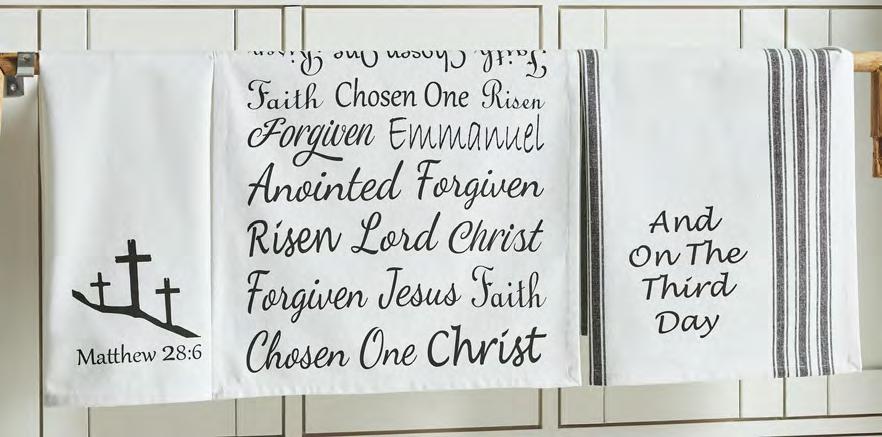 Matthew 28:6
Faith Chosen One Risen
Faith Chosen One Risen
Forgiven Emmanuel
Anointed Forgiven
Risen Lord Christ
Forgiven Jesus Faith
Chosen One Christ
And
On The
Third
Day